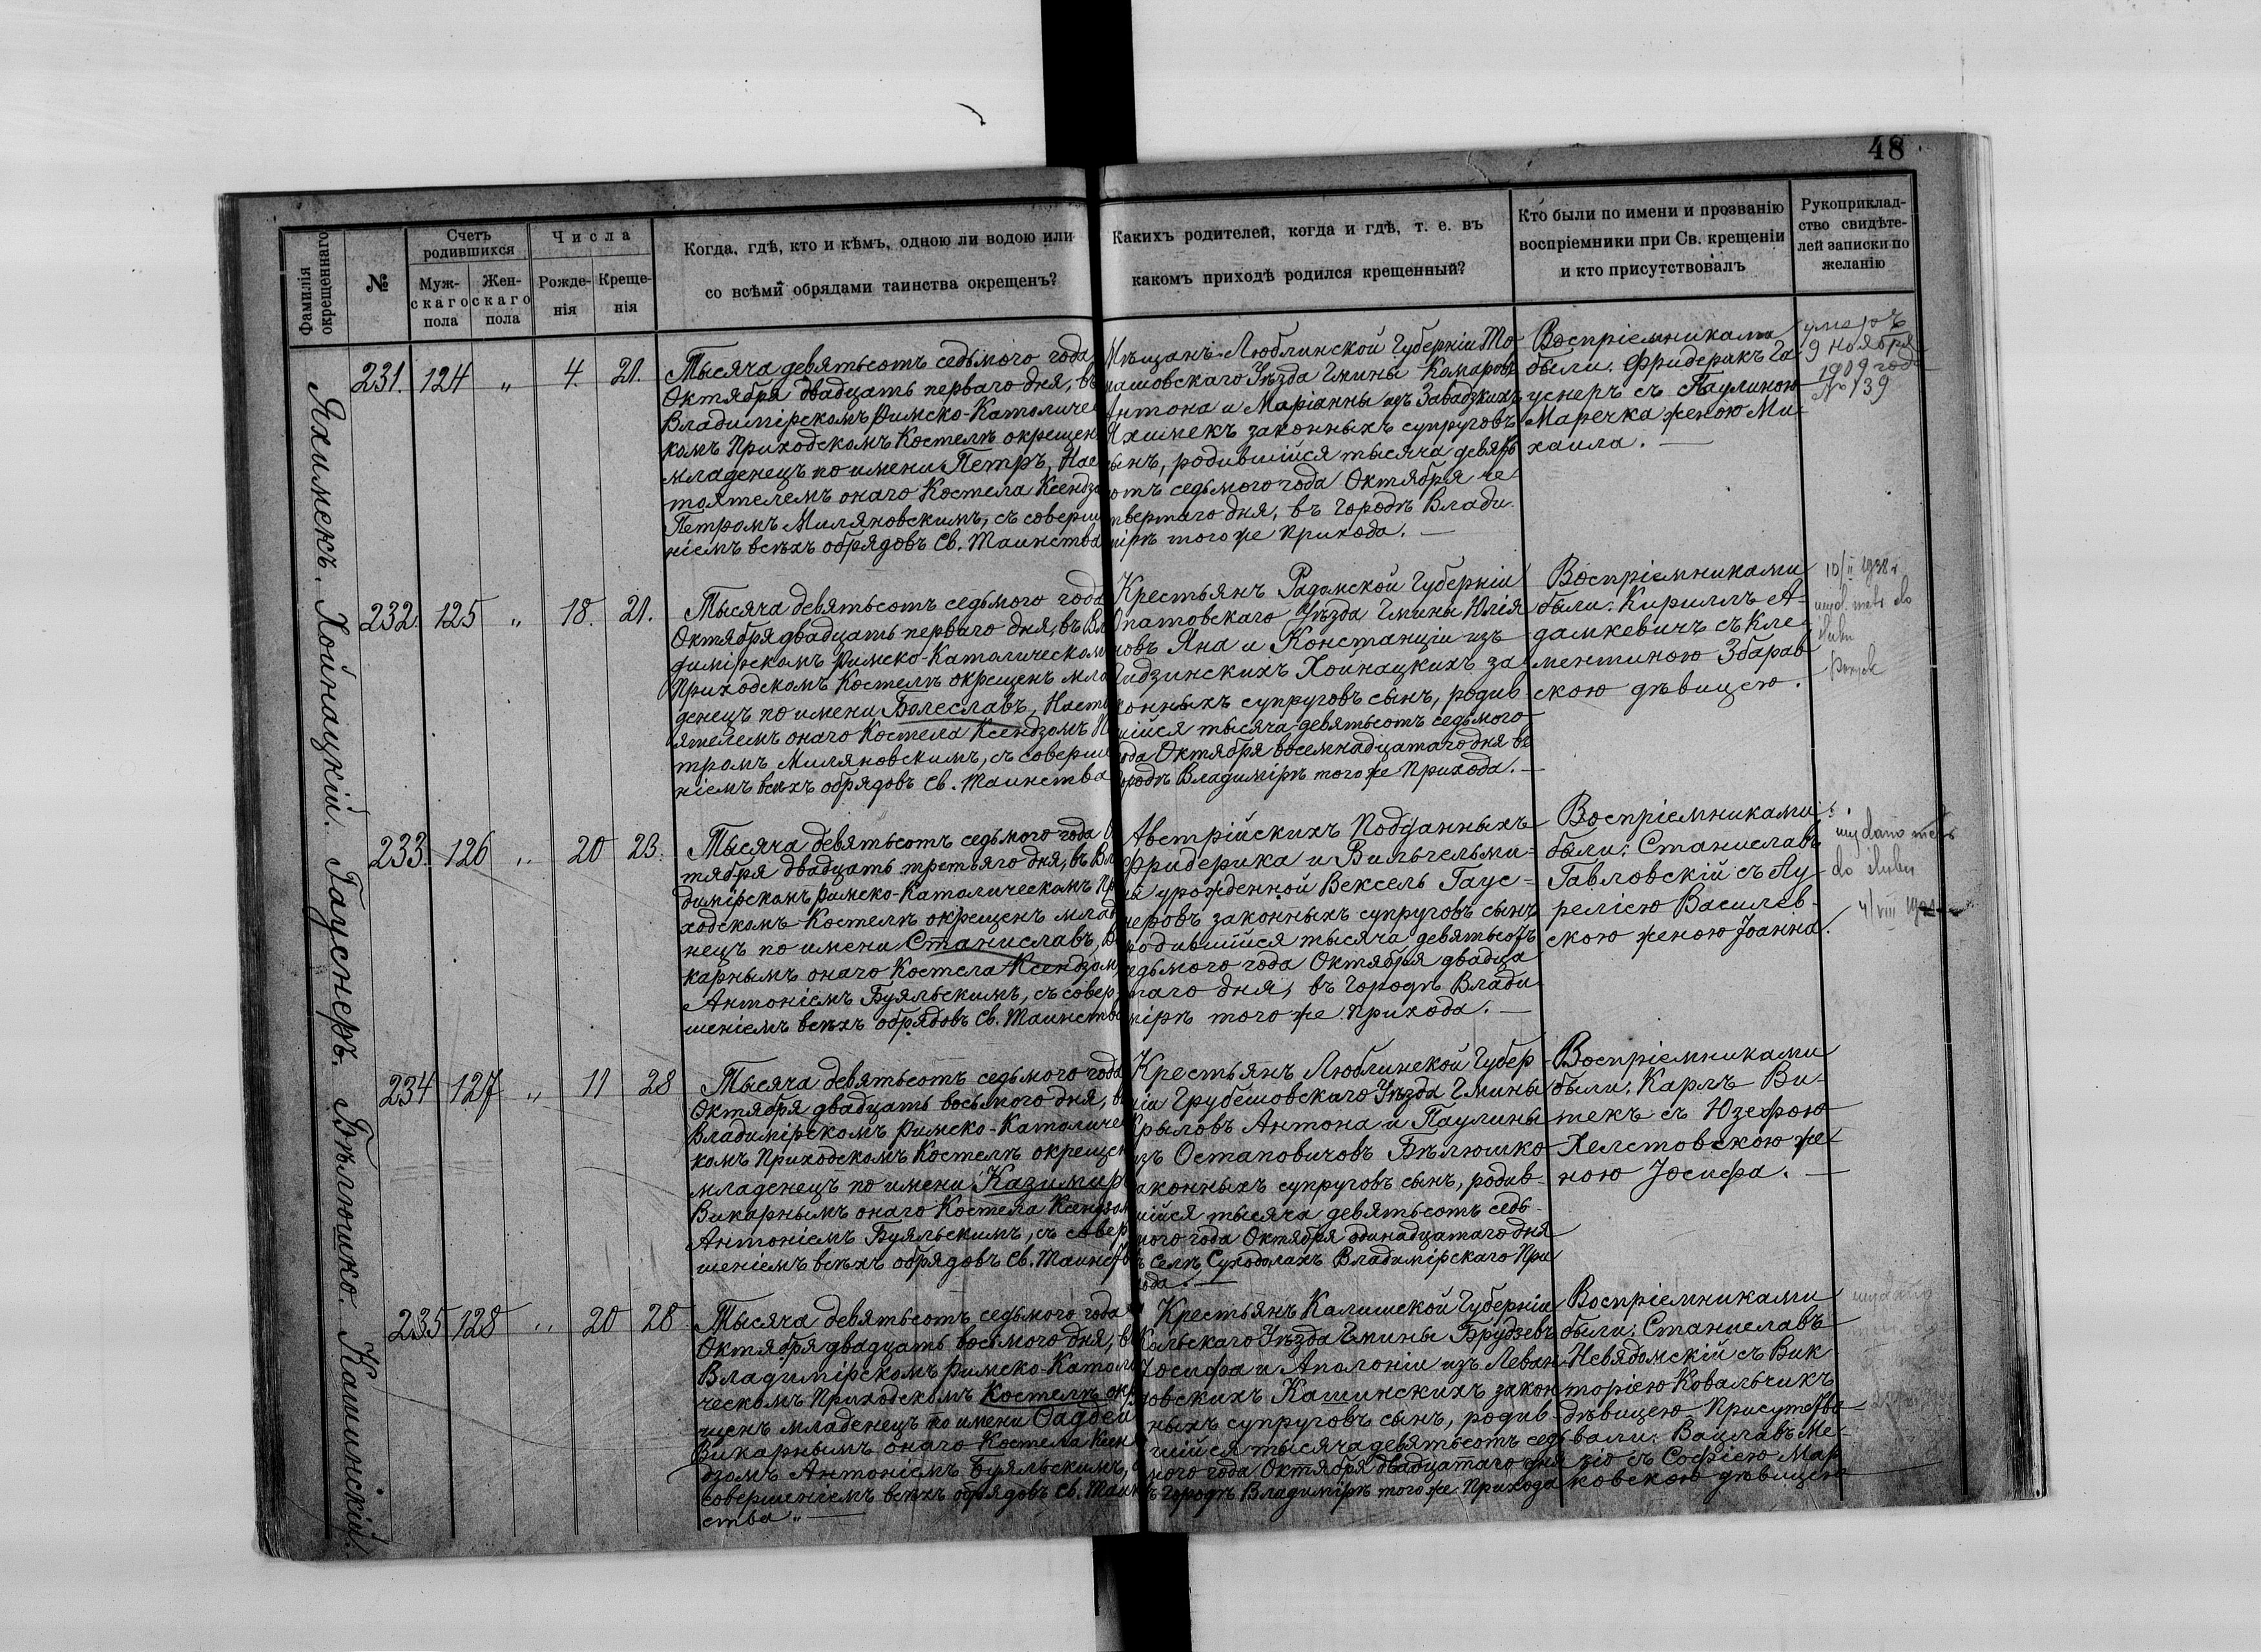 48
Фамилія окрещеннаго
№
Счетъ родившихся
Муж-скаго пола
Жен-скаго пола
Числа
Рожде-нія
Креще-нія
Когда, гдѣ, кто и кѣмъ, одною ли водою или
со всѣми обрядами таинства окрещенъ?
Какихъ родителей, когда и гдѣ, т. е. въ
какомъ приходѣ родился крещенный?
Кто были по имени и прозванію
воспріемники при Св. крещеніи
и кто присутствовалъ
Рукоприклад-
ство свидѣте-
лей записки по
желанію
Яхимекъ.
231. 124 „ 4. 21.
Тысяча девятьсотъ седьмого года
Октября двадцать перваго дня, въ
Владимірскомъ Римско-Католичес
комъ Приходскомъ Костелѣ окрещенъ
младенецъ по имени Петръ, Нас
тоятелемъ онаго Костела Ксендзо
Петромъ Миляновскимъ, съ соверше
ніемъ всѣхъ обрядовъ Св. Таинства
Мѣщанъ Люблинской Губерніи То
машовскаго Уѣзда Гмины Комаровъ
Антона и Маріанны изъ Завадзкихъ
Яхимекъ законныхъ супруговъ
сынъ, родившійся тысяча девять
сотъ седьмого года Октября че
твертаго дня, въ городѣ Влади
мірѣ того же Прихода.
Воспріемниками
были: Фридерикъ Га
уснеръ съ Паулиною
Маречка женою Ми-
хаила.
умеръ
9 ноября
1909 года
№ 139
Хойнацкій.
232. 125 „ 18. 21.
Тысяча девятьсотъ седьмого года
Октября двадцать перваго дня, въ Вла
димірскомъ Римско-Католическомъ
Приходскомъ Костелѣ окрещенъ мла
денецъ по имени Болеславъ, Насто
ятелемъ онаго Костела Ксендзомъ Пе
тромъ Миляновскимъ, съ соверше
ніемъ всѣхъ обрядовъ Св. Таинства
Крестьянъ Радомской Губерніи
Опатовскаго Уѣзда Гмины Юлія
новъ Яна и Констанціи изъ
Хойнацкихъ за
конныхъ супруговъ сынъ, родив-
шійся тысяча девятьсотъ седьмого
года Октября восемнадцатаго дня въ
городѣ Владимірѣ того же Прихода.
Воспріемниками
были: Кириллъ А-
дамкевичъ съ Кле-
ментиною Збарав
скою дѣвицею.
10/II 1938 r
wyd. metr do
ślubu
Гауснеръ.
233. 126 „ 20 23.
Тысяча девятьсотъ седьмого года Ок
тября двадцать третьяго дня, въ Вла
димірскомъ Римско-Католическомъ При
ходскомъ Костелѣ окрещенъ младе
нецъ по имени Станиславъ, Ви
карнымъ онаго Костела Ксендзом
Антоніемъ Буяльскимъ, съ совер-
шеніемъ всѣхъ обрядовъ Св. Таинства
Австрійскихъ Подданныхъ
Фридерика и Вильгельми-
ны урожденной Вексель Гаус-
неровъ законныхъ супруговъ сынъ
родившійся тысяча девятьсотъ
седьмого года Октября двадца
таго дня, въ городѣ Влади
мірѣ того же Прихода.
Воспріемниками
были: Станиславъ
Гавловскій съ Ау-
реліею Василев-
скою женою Іоанна.
wydano metr
do ślubu
4/VIII
Бѣлюшко.
234 127 „ 11 28
Тысяча девятьсотъ седьмого года
Октября двадцать восьмого дня, въ
Владимірскомъ Римско-Католичес
комъ Приходскомъ Костелѣ окрещен
младенецъ по имени Казимиръ
Викарнымъ онаго Костела Ксендзом
Антоніемъ Буяльскимъ, съ совер
шеніемъ всѣхъ обрядовъ Св. Таинств
Крестьянъ Люблинской Губер-
ніи Грубешовскаго Уѣзда Гмины
Крыловъ Антона и Паулины
изъ Остаповичовъ Бѣлюшко
законныхъ супруговъ сынъ, родив-
шійся тысяча девятьсотъ седь-
мого года Октября одинадцатаго дня
въ Селѣ Суходолахъ Владимірскаго При
хода.
Воспріемниками
были: Карлъ Ви-
текъ съ Юзефою
Хелстовскою же
ною Іосифа.
Кашинскій.
235 128 „ 20 28
Тысяча девятьсотъ седьмого года
Октября двадцать восьмого дня, въ
Владимірскомъ Римско-Католи
ческомъ Приходскомъ Костелѣ окре
щенъ младенецъ по имени Фаддей
Викарнымъ онаго Костела Ксен
дзомъ Антоніемъ Буяльскимъ, съ
совершеніемъ всѣхъ обрядовъ Св. Таин
ства.
Крестьянъ Калишской Губерніи
Кольскаго Уѣзда Гмины Брудзевъ
Іосифа и Аполоніи изъ Леван
довскихъ Кашинскихъ закон
ныхъ супруговъ сынъ, родив-
шійся тысяча девятьсотъ седь
мого года Октября двадцатаго дня
въ Городѣ Владимірѣ того же Прихода
Воспріемниками
были: Станиславъ
Невядомскій съ Вик
торіею Ковальчикъ
дѣвицею Присутство
вали: Вацлавъ Ме-
зіо съ Софіею Мар
ковскою дѣвицею
wydano